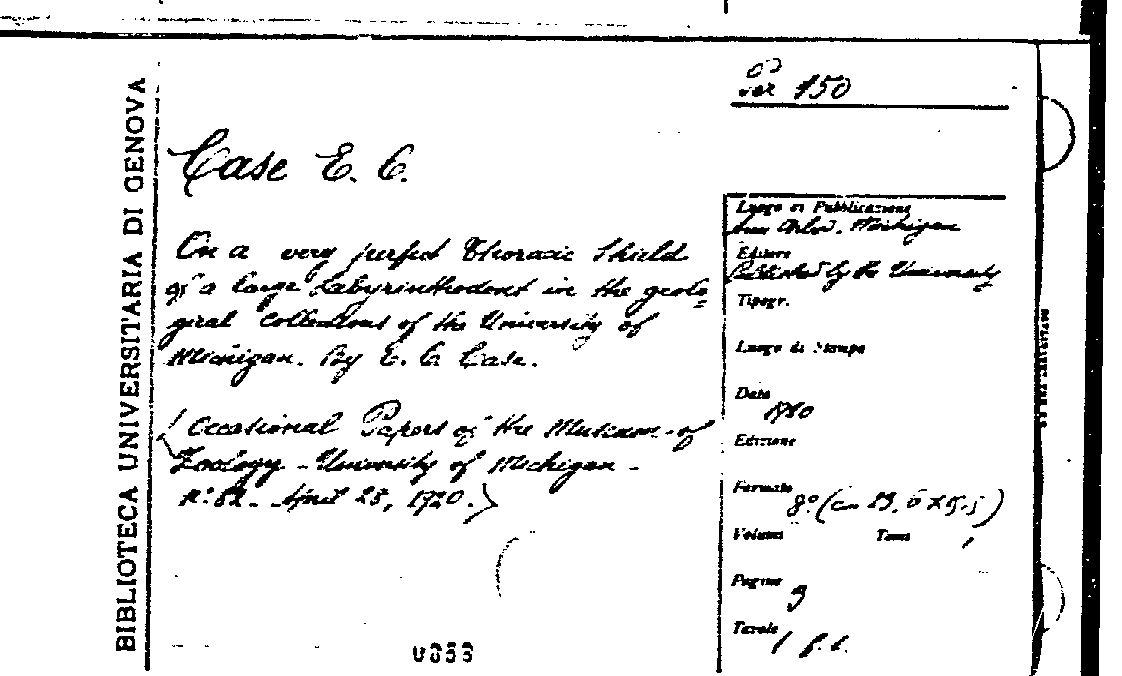 Per 150
BIBLIOTECA UNIVERSITARIA DI GENOVA
Case E. C.
On a very perfect Thoracic Shield
of a large labyrinthodont in the geolo=
gical collections of the University of
Michigan. By E. C. Case.
(Occasional Papers of the Museum of
Zoology - University of Michigan -
N.° 82. April 28, 1920.)
Luogo di Pubblicazione
Ann Arbor. Michigan
Editore
Published by the University
Tipogr.
Luogo di Stampa
Data
1920
Edizione
Formato
8° (cm 23,5 x 15.5)
Volumi Tomi 1
Pagine
3
Tavole
1 f.t.
0853